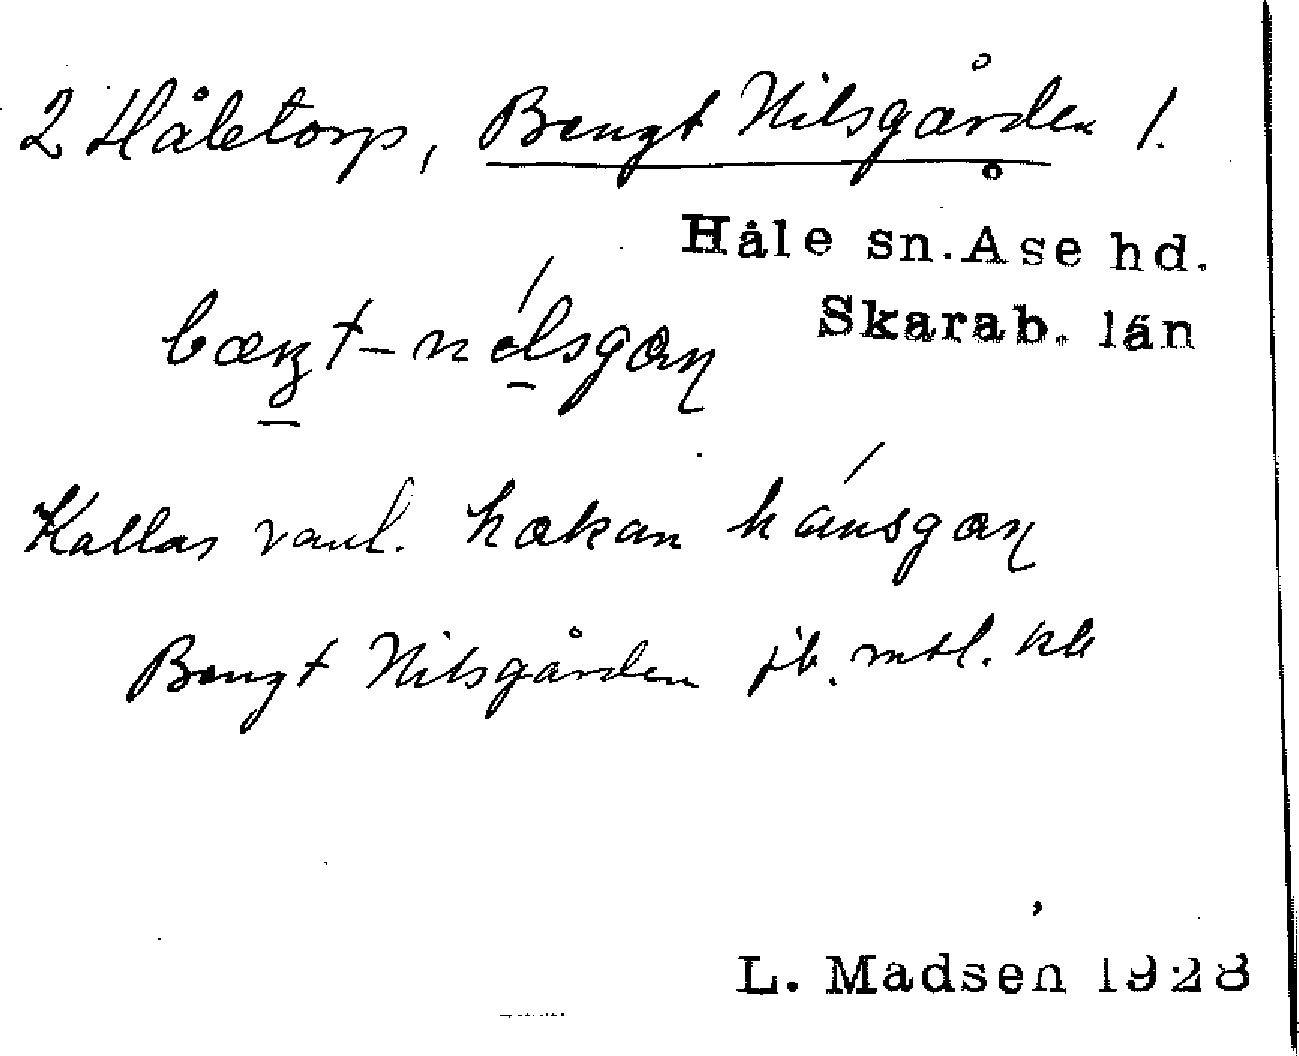 2 Håletorp, Bengt Nilsgården 1.
Håle sn. Åse hd.
Skarab. län
bæŋt-nílsgaɳ
Kallas vanl. hakan hánsgaɳ
Bengt Nilsgården jb. mtl.
L. Madsen 1928